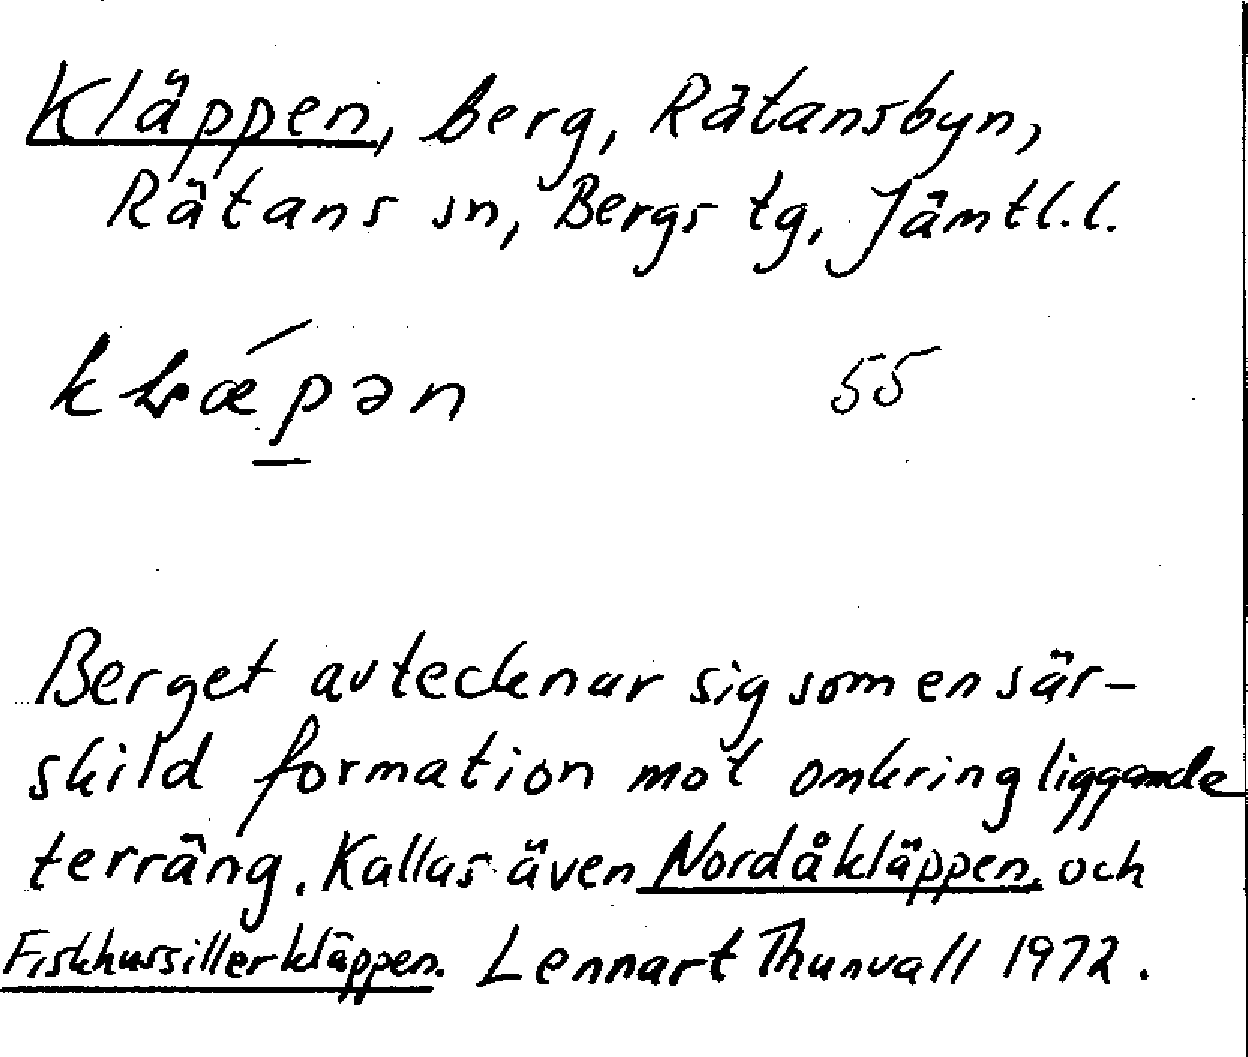 Kläppen, berg, Rätansbyn,
Rätans sn, Bergs tg, Jämtl.l.
55
Berget avtecknar sig som en sär-
skild formation mot omkringliggande
terräng. Kallas även Nordåkläppen, och
Fiskhussillerkläppen. Lennart Thunvall 1972.